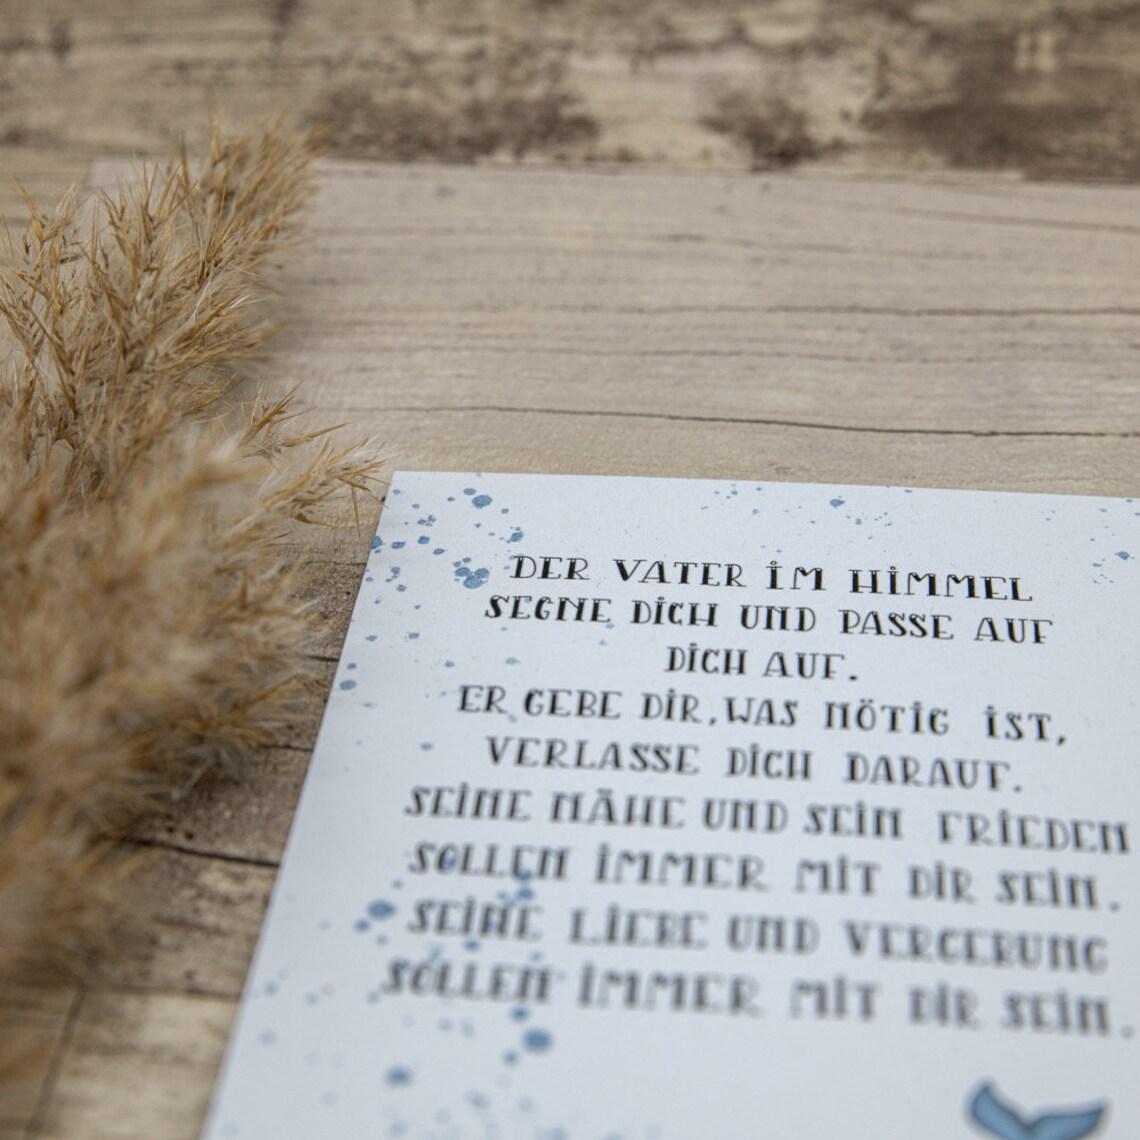 DER VATER IM HIMMEL
SEGNE DICH UND PASSE AUF
DICH AUF.
ER GEBE DIR, WAS NÖTIG IST,
VERLASSE DICH DARAUF.
SEINE NÄHE UND SEIN FRIEDEN
SOLLEN IMMER MIT DIR SEIN.
SEINE LIEBE UND VERGEBUNG
SOLLEN IMMER MIT DIR SEIN.